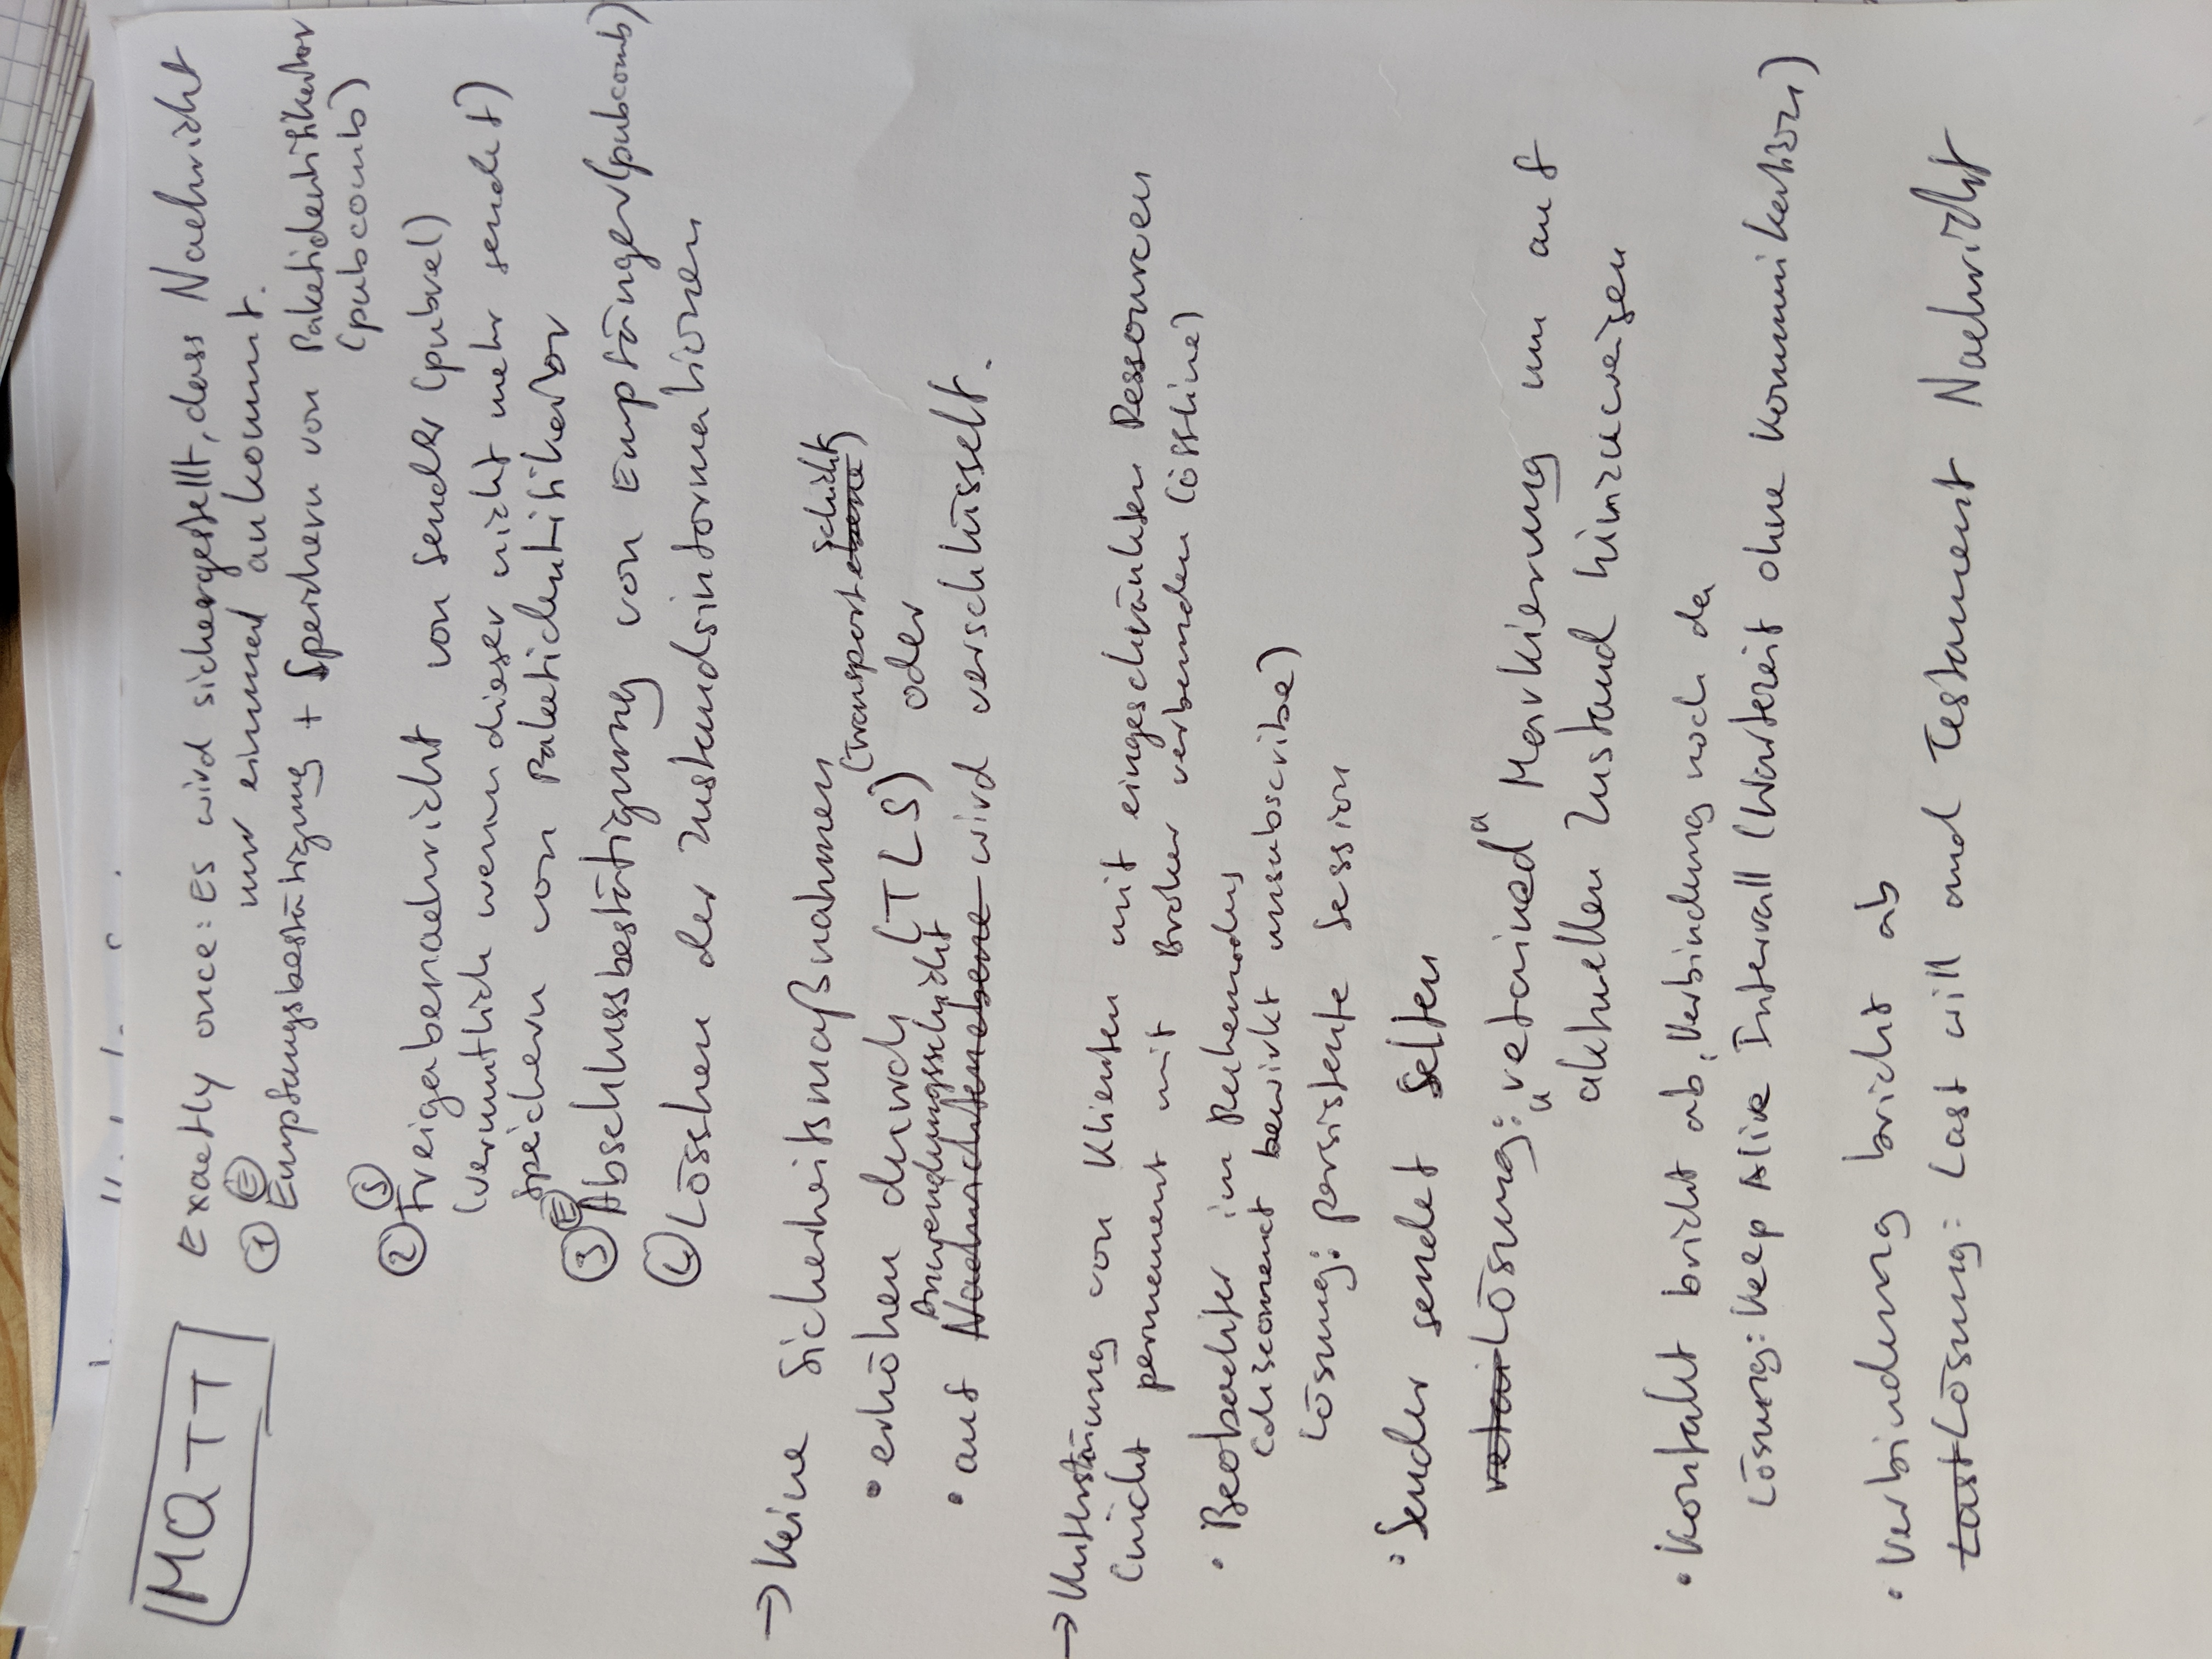 MQTT
Exactly once: Es wird sichergestellt, dass Nachricht
nur einmal ankommt.
① Ⓔ Empfangsbestätigung + Speichern von Paketidentifikator
(pubcomb)
② Ⓢ Freigabenachricht von Sender (pubrel)
(vermutlich wenn dieser nicht mehr sendet)
Speichern von Paketidentifikator
③ Ⓔ Abschlussbestätigung von Empfänger (pubcomb)
④ Löschen der Zustandsinformationen
→ Keine Sicherheitsmaßnahmen
schicht
• erhöhen durch (TLS) (Transportebene) oder
Anwendungsschicht
• auf Nachrichtenebene wird verschlüsselt.
→ Unterstützung von Klienten mit eingeschränkten Ressourcen
(nicht permanent mit Broker verbunden (offline)
• Beobachter im Ruhemodus
(disconnect bewirkt unsubscribe)
Lösung: persistente Session
• Sender sendet selten
retai Lösung: „retained" Markierung um auf
aktuellen Zustand hinzuweisen
• Kontakt bricht ab, Verbindung noch da
Lösung: Keep Alive Intervall (Wartezeit ohne Kommunikation)
• Verbindung bricht ab
Last Lösung: Last will and Testament Nachricht